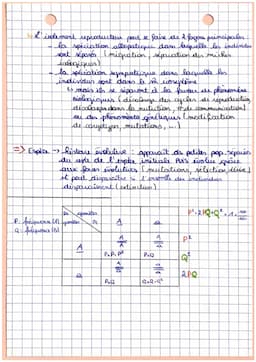 ↳ L'isolement reproducteur peut se faire de 2 façons principales
- la spéciation allopatrique dans laquelle les individus sont séparés (migration, séparation du milieu
- la spéciation sympatrique dans laquelle les individus sont dans le
↳ mais ils se séparent à la faveur de phénomènes biologiques (décalage des cycles de reproduction,
de communication)
ou des phénomènes génétiques (modification de caryotype, mutations, ...)
=> Espèce → Réseau évolutif : apparait de petites pop. séparées
du reste de l'espèce initiale. Puis évolue grâce
aux forces évolutives (mutations, sélection,
et peut disparaitre si l'ensemble des individus
disparaissent (extinction)
P²+2PQ+Q²=1
P : fréquence (A)
Q : fréquence (a)
A
a
P²
Q²
2PQ
A
P×P=P²
P×Q
a
P×Q
Q×Q=Q²